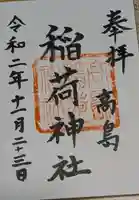 奉拝
高鳥
稲荷神社
令和二年十一月二十三日